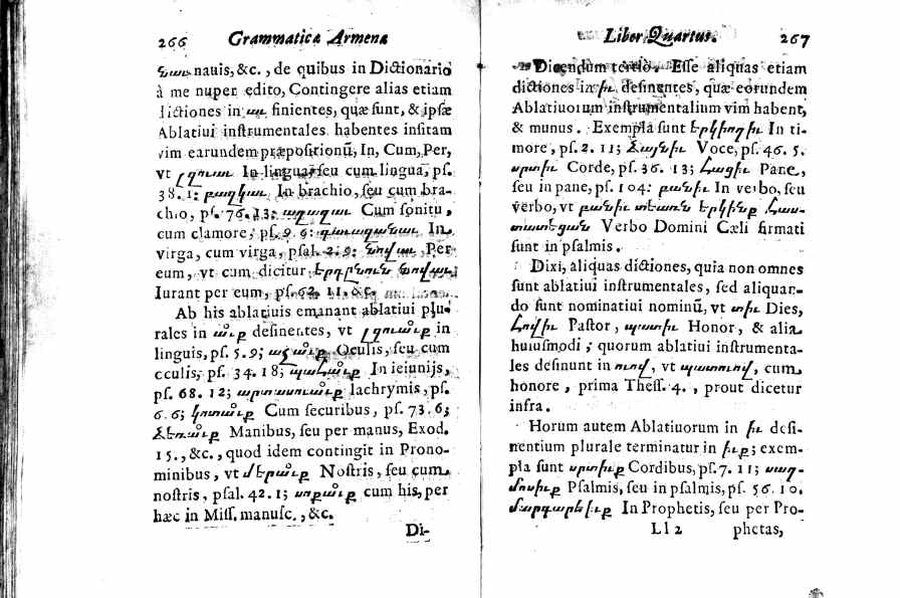 266 Grammatica Armena
նաւ nauis, &c., de quibus in Dictionario
à me nuper edito, Contingere alias etiam
dictiones in աւ finientes, quæ sunt, & ipsæ
Ablatiui instrumentales habentes insitam
vim earundem præpositionũ, In, Cum, Per,
vt լզուաւ In lingua, seu cum lingua, ps.
38. 1; բազկաւ In brachio, seu cum bra-
chio, ps. 76. 13; աղաղաւ Cum sonitu,
cum clamore, ps. 9. 6: գաւազանաւ In
virga, cum virga, psal. 2. 9: նովաւ Per
eum, vt cum dicitur երդընուն նովաւ
Iurant per eum, ps. 62. 11. &c.
Ab his ablatiuis emanant ablatiui plu-
rales in աւք desinentes, vt լզուաւք in
linguis, ps. 5. 9; աչաւք Oculis, seu cum
oculis, ps. 34. 18; պահաւք In ieiunijs,
ps. 68. 12; արտասուաւք lachrymis, ps.
6. 6; կռտաւք Cum securibus, ps. 73. 6;
ձեռաւք Manibus, seu per manus, Exod.
15., &c., quod idem contingit in Prono-
minibus, vt մերաւք Nostris, seu cum
nostris, psal. 42. 1; սոքաւք cum his, per
hæc in Miss. manusc., &c.
Di-
Liber Quartus. 267
Dicendum tertiò. Esse aliquas etiam
dictiones in իւ desinentes, quæ eorundem
Ablatiuorum instrumentalium vim habent,
& munus. Exempla sunt երկիւղիւ In ti-
more, ps. 2. 11; ձայնիւ Voce, ps. 46. 5.
սրտիւ Corde, ps. 36. 13; հացիւ Pane,
seu in pane, ps. 104: բանիւ In verbo, seu
verbo, vt բանիւ տեառն երկինք հաս-
տատեցան Verbo Domini Cæli firmati
sunt in psalmis.
Dixi, aliquas dictiones, quia non omnes
sunt ablatiui instrumentales, sed aliquan-
do sunt nominatiui nominũ, vt տիւ Dies,
հովիւ Pastor, պատիւ Honor, & alia
huiusmodi; quorum ablatiui instrumenta-
les desinunt in ուով, vt պատուով, cum
honore, prima Thess. 4., prout dicetur
infra.
Horum autem Ablatiuorum in իւ desi-
nentium plurale terminatur in իւք; exem-
pla sunt սրտիւք Cordibus, ps. 7. 11; սաղ-
մոսիւք Psalmis, seu in psalmis, ps. 56. 10.
մարգարէիւք In Prophetis, seu per Pro-
Ll 2 phetas,